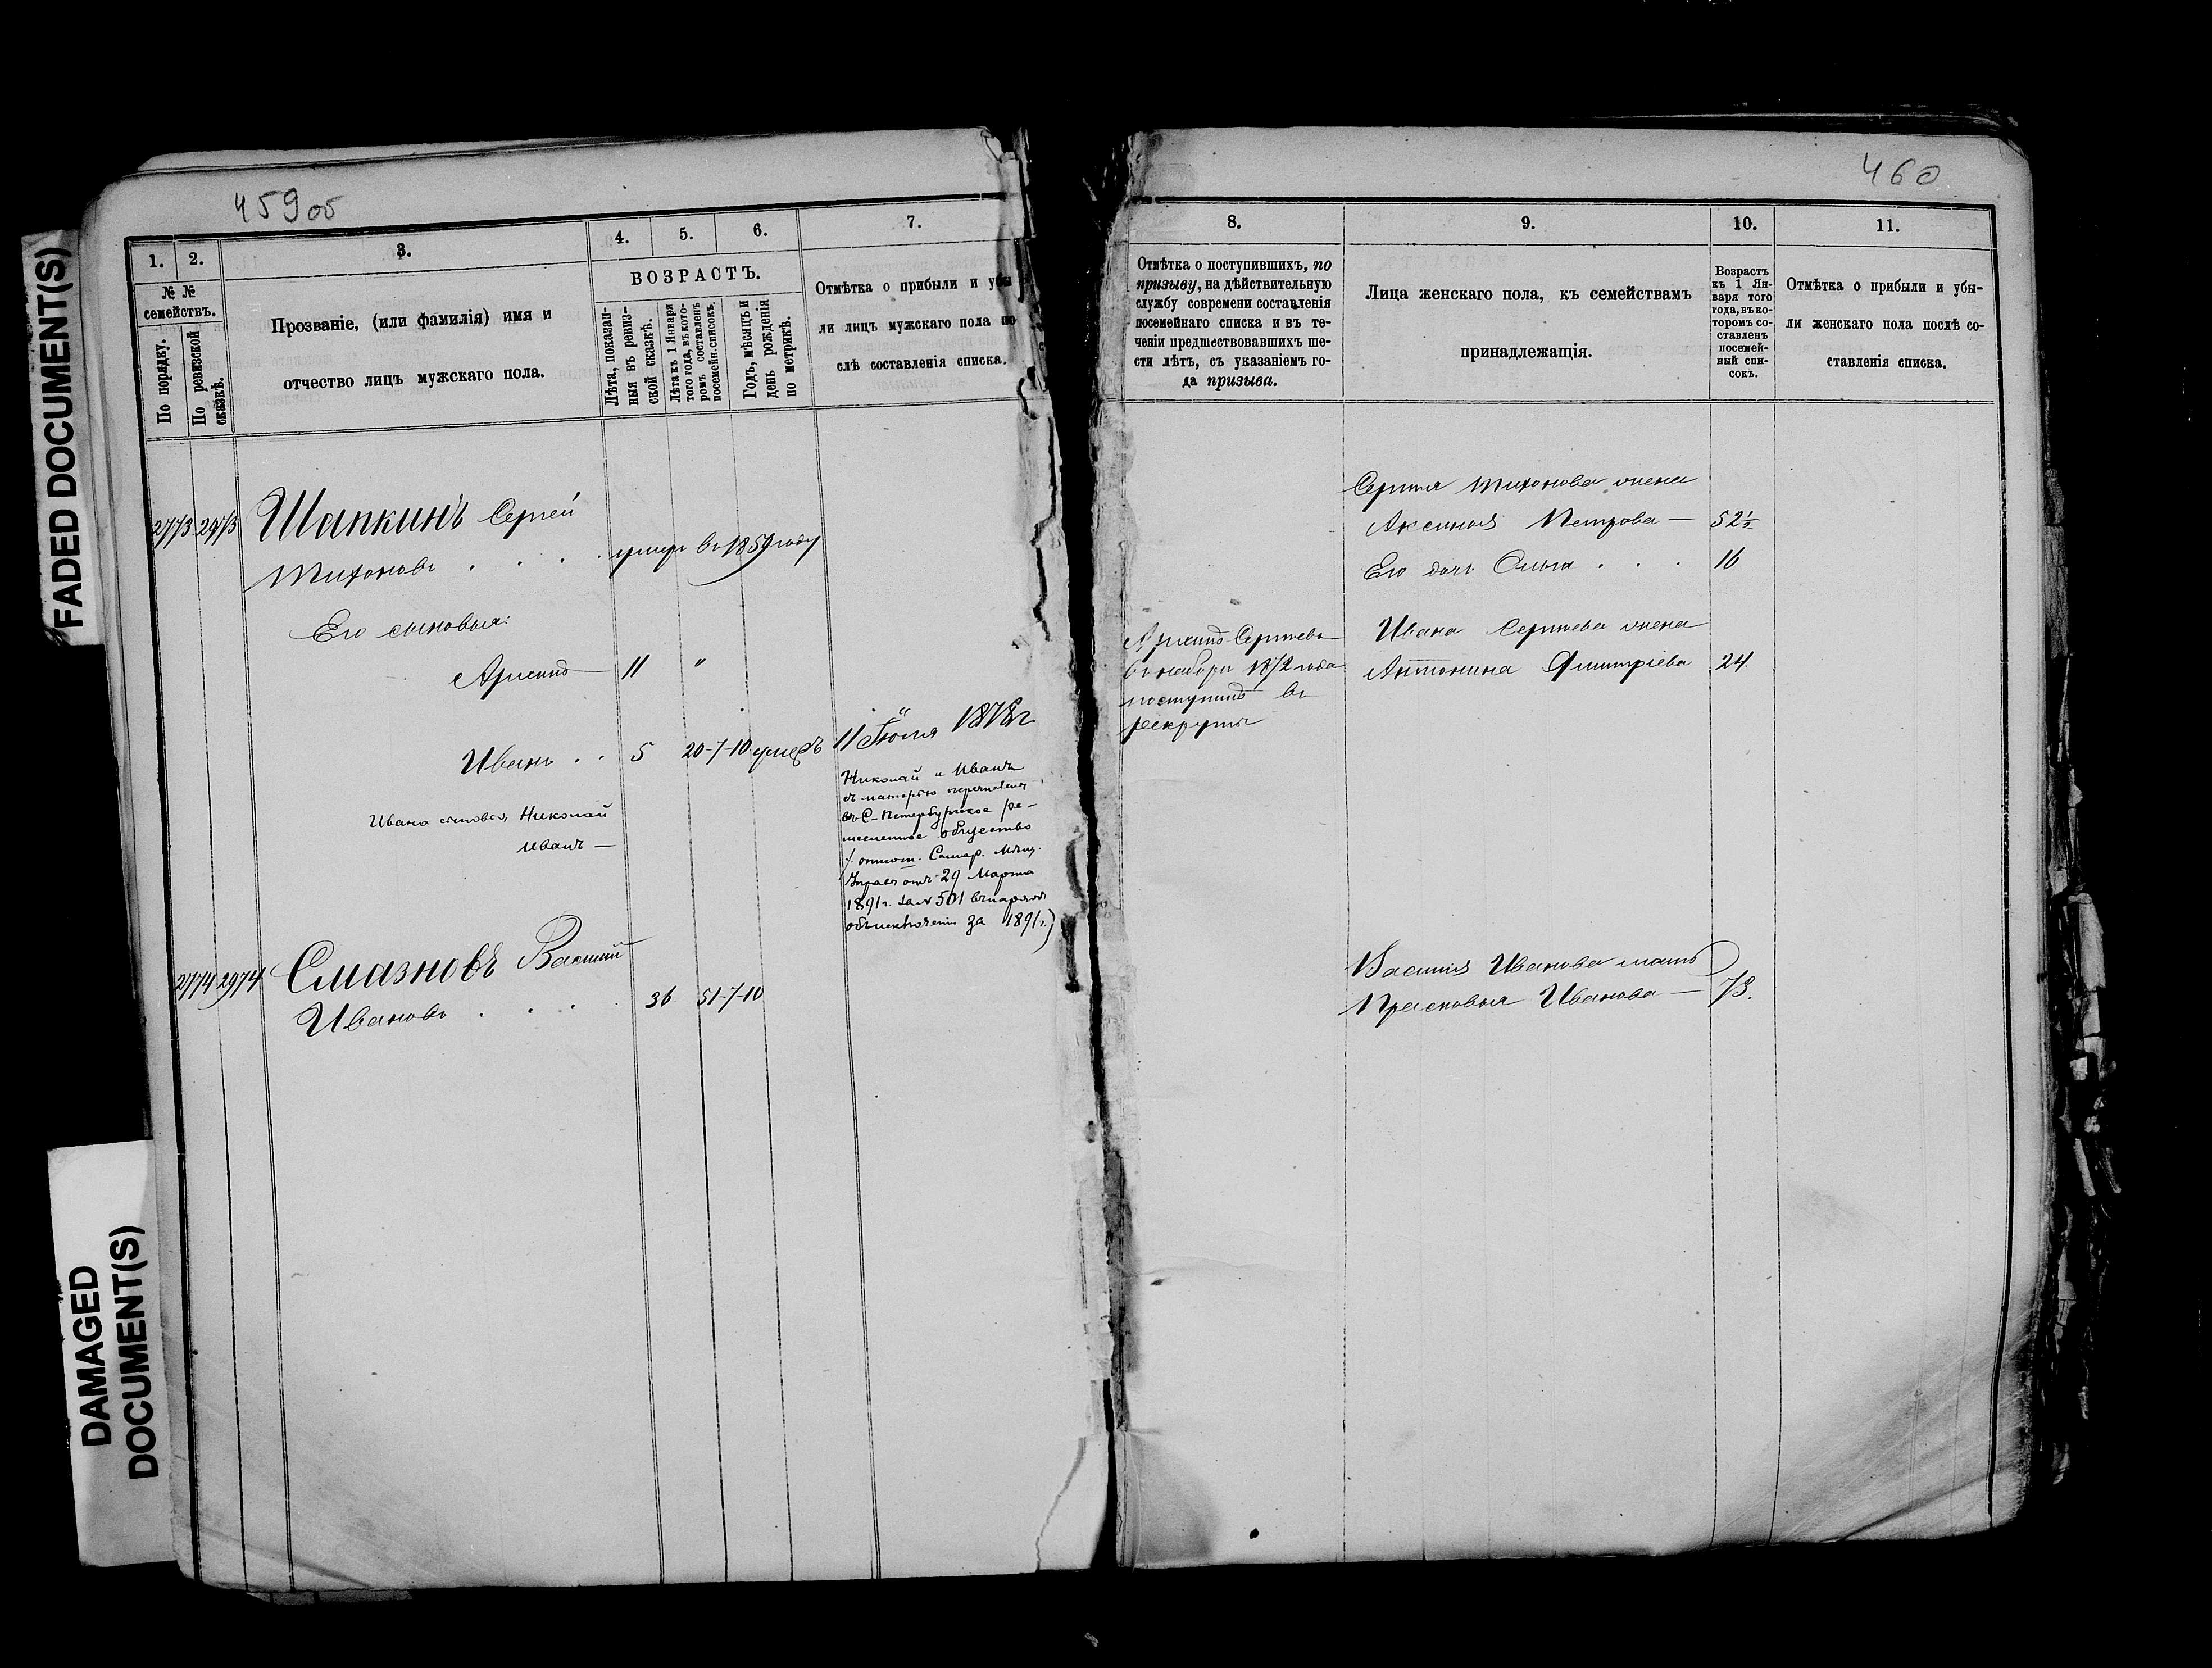 FADED DOCUMENT(S)
DAMAGED
DOCUMENT(S)
459об
1.
2.
3.
4.
5.
6.
7.
№ №
семействъ.
По порядку.
По ревизской
сказкѣ.
Прозваніе, (или фамилія) имя и
отчество лицъ мужскаго пола.
ВОЗРАСТЪ.
Лѣта, показан-
ныя въ ревиз-
ской сказкѣ.
Лѣта къ 1 Января
того года, въ кото-
ромъ составленъ
посемейн. списокъ.
Годъ, мѣсяцъ и
день рожденія
по метрикѣ.
Отмѣтка о прибыли и убы
ли лицъ мужскаго пола по
слѣ составленія списка.
2773 2973 Шапкинъ Сергей
Тихоновъ . . . умеръ въ 1859 году
Его сыновья:
11 "
Иванъ . . 5 20-7-10 умеръ 11 Іюля 1878г
Ивана сыновья Николай
Иванъ —
Николай и Иванъ
съ матерью перечислены
въ С-Петербургское ре-
месленное общество
Самар. Мѣщ.
Управ отъ 29 Марта
1891г. за № 501 въ нарядѣ
объ исключеніи за 1891г.)
2774 2974 Смазновъ Василій
Ивановъ . . . 36 51-7-10
460
8.
9.
10.
11.
Отмѣтка о поступившихъ, по
призыву, на дѣйствительную
службу современи составленія
посемейнаго списка и въ те-
ченіи предшествовавшихъ ше-
сти лѣтъ, съ указаніемъ го-
да призыва.
Лица женскаго пола, къ семействамъ
принадлежащія.
Возрастъ
къ 1 Ян-
варя того
года, въ ко-
торомъ со-
ставленъ
посемей-
ный спи-
сокъ.
Отмѣтка о прибыли и убы-
ли женскаго пола послѣ со-
ставленія списка.
Сергѣя Тихонова жена
Аксинья Петрова — 52½
Его дочь Ольга . . . 16
Сергѣевъ
въ ноябрѣ 1872 года
поступилъ въ
рекруты
Ивана Сергѣева жена
Антонина Дмитріева 24.
Василія Иванова мать
Прасковья Иванова — 73.